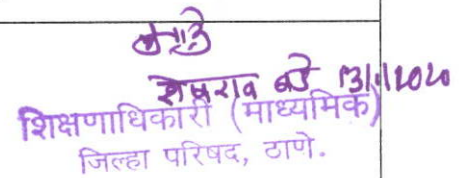 शेषराव बडे 13/1/2020
शिक्षणाधिकारी (माध्यमिक)
जिल्हा परिषद, ठाणे.